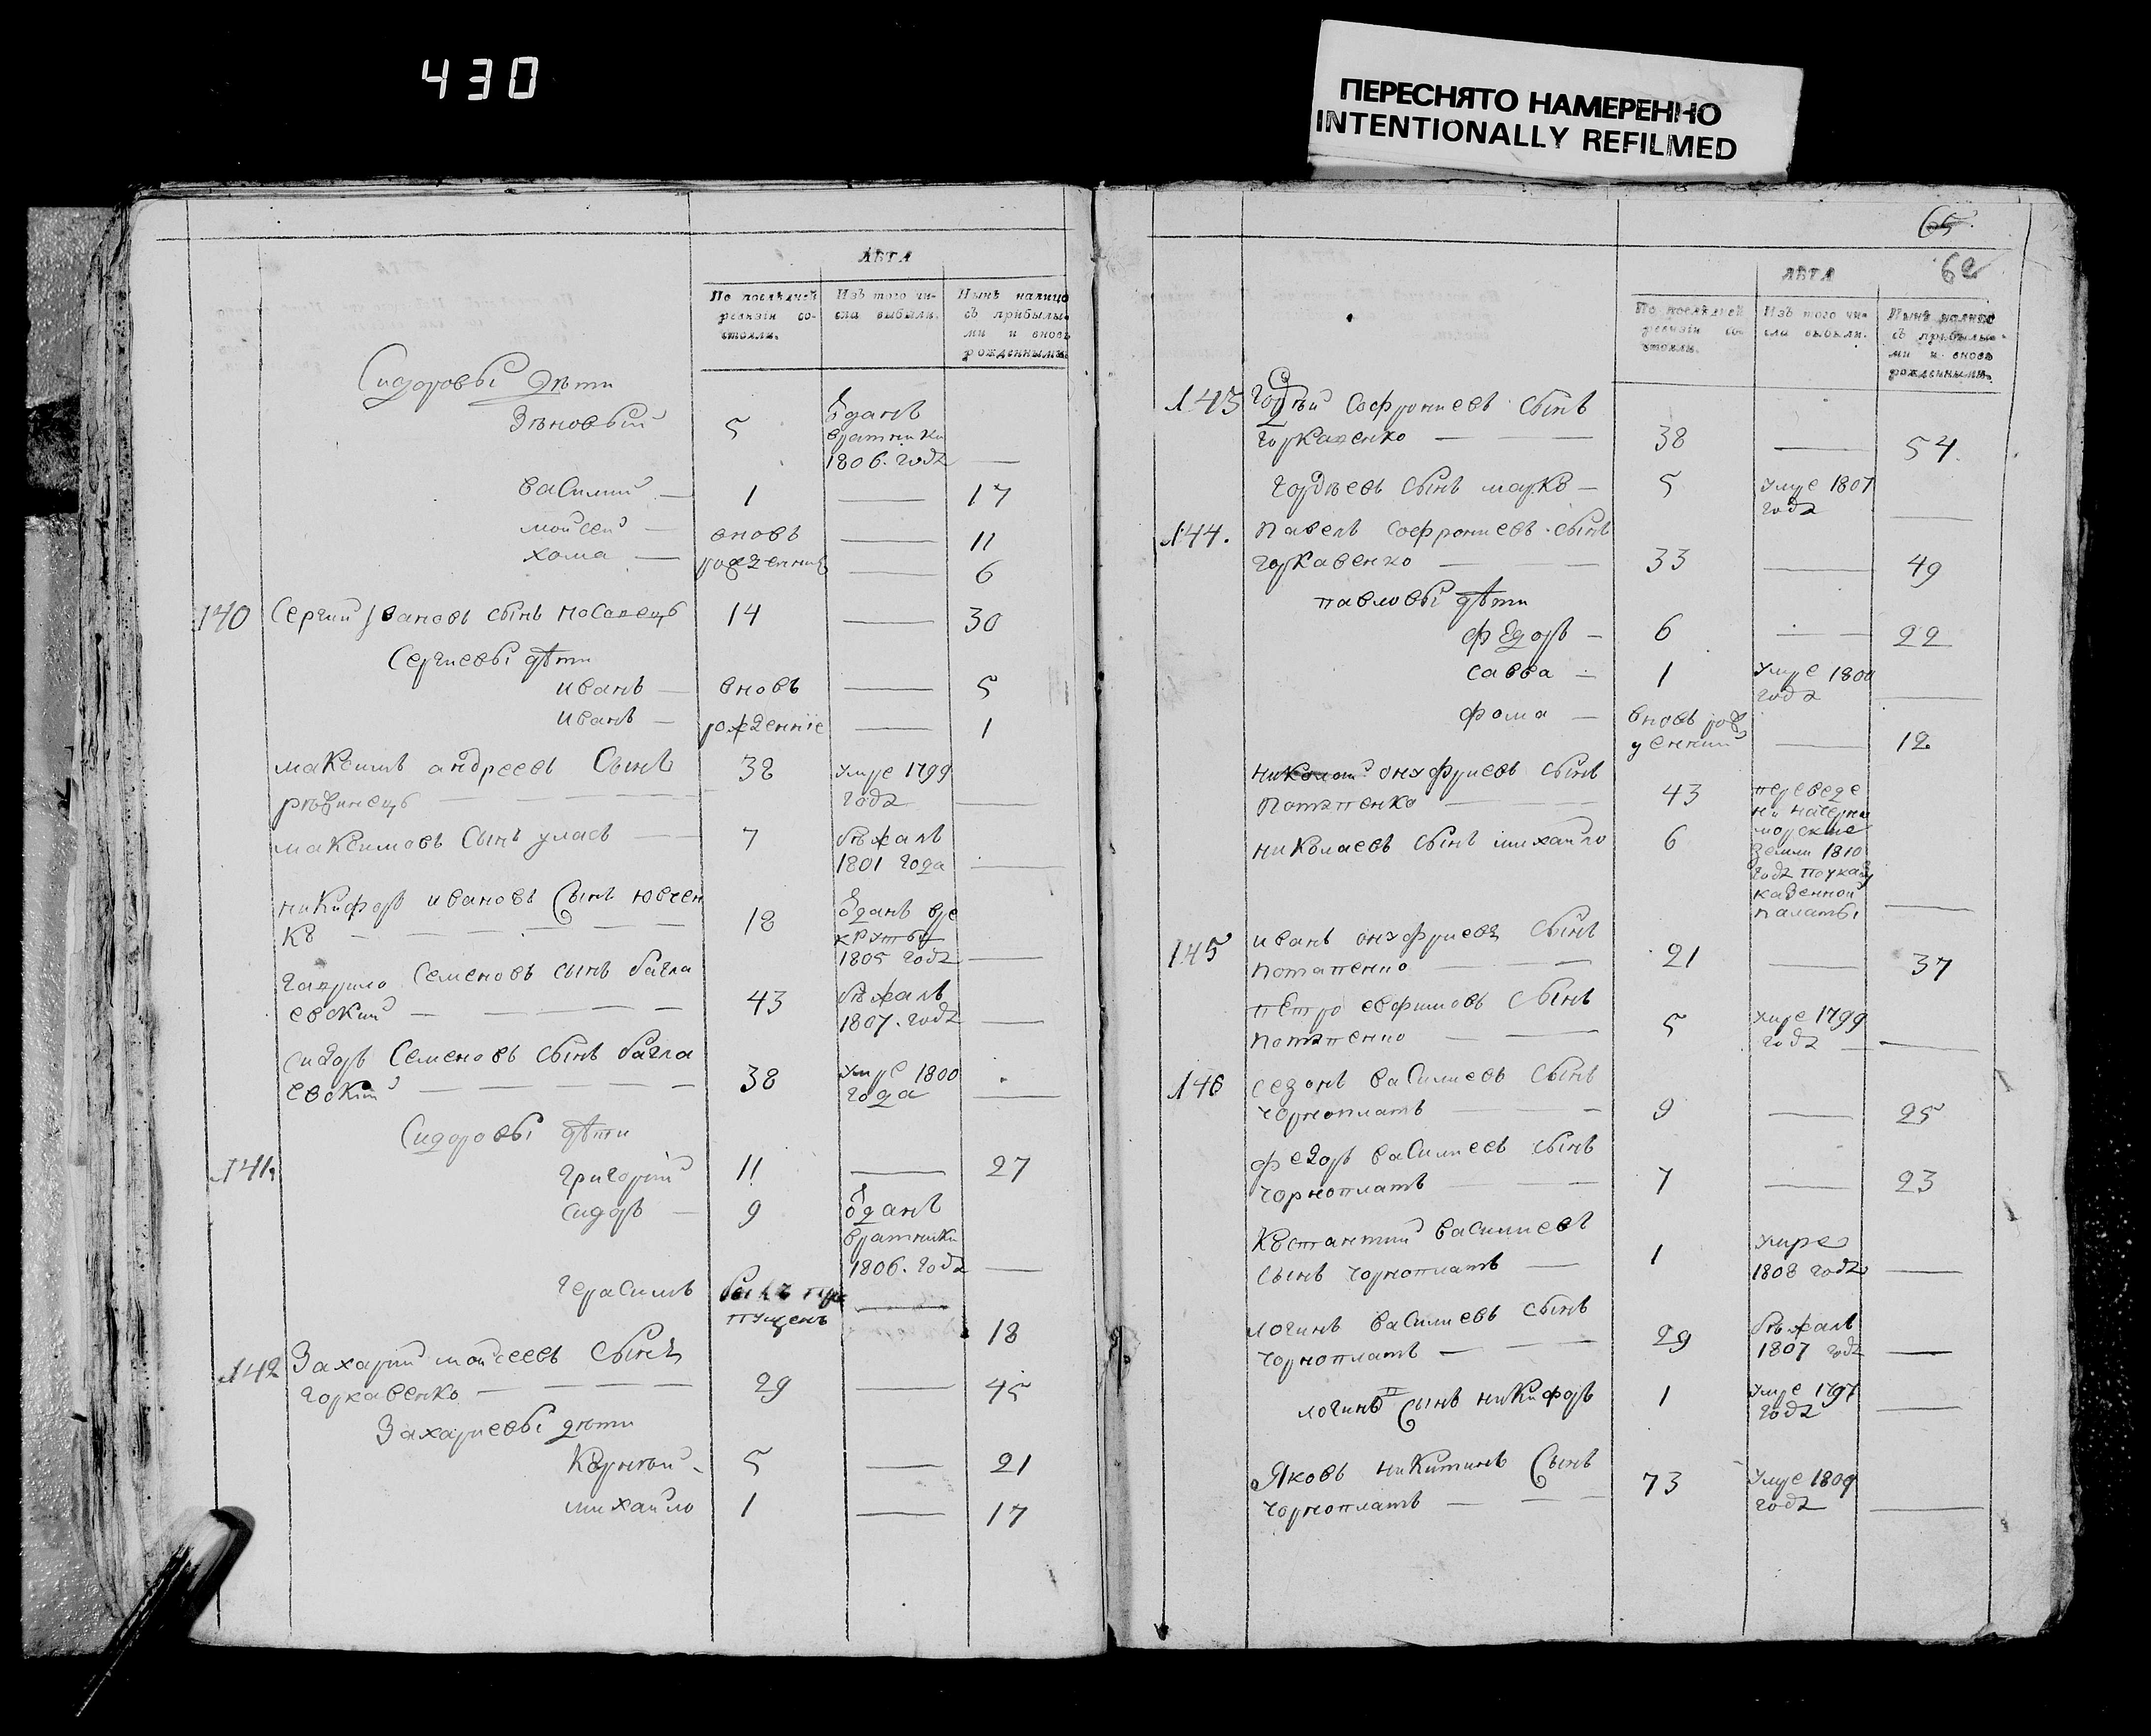 430
ПЕРЕСНЯТО НАМЕРЕННО
INTENTIONALLY REFILMED
ЛѢТА
По послѣдней ревизіи состояли.
Изъ того числа выбыли.
Нынѣ налицо съ прибылыми и вновь рожденными.
Сидоровы дѣти
Зѣновѣй 5 Ѿданъ
вратники
1806. года —
василий — 1 — 17
мойсей — вновь — 11
хома — рожденние — 6
140 Сергий Ивановъ сынъ носанецъ 14 — 30
Сергиевы дѣти
иванъ — вновь — 5
иванъ — рожденніе — 1
максимъ андреевъ Сынъ 38 умре 1799
года —
максимовъ Сынъ уласъ — 7 бѣжалъ
1801 года —
никифоръ ивановъ Сынъ ювчен
ко — 18 Ѿданъ вре
круты
1805 года —
гаврило Семеновъ сынъ багла
евский — 43 бѣжалъ
1807. года —
сидоръ Семеновъ сынъ багла
евский — 38 умре 1800
года —
Сидоровы дѣти
141 григорий 11 — 27
сидоръ — 9 Ѿданъ
вратники
1806. года —
герасимъ былъ про
пущенъ — 18
142 Захарий мойсеевъ Сынъ
горкавенко — 29 — 45
Захариевы дѣти
Корнѣй - 5 — 21
михайло 1 — 17
65
62
ЛѢТА
По послѣдней ревизіи состояли.
Изъ того числа выбыли.
Нынѣ налицо съ прибылыми и вновь рожденными.
143 гордѣй софрониевъ сынъ
горкавенко — 38 — 54
гордѣевъ сынъ марко — 5 умре 1807
года —
144. павелъ софрониевъ сынъ
горкавенко — 33 — 49
павловы дѣти
федоръ — 6 — 22
савва — 1 умре 1800
года —
фома — вновь рож
денний — 12
николай онуфриевъ сынъ
потапенко — 43 переведе
ни начерно
морские
николаевъ сынъ михайло 6 земли 1810
года поуказу
казенной
палаты —
145 иванъ онуфриевъ сынъ
потапенко — 21 — 37
петро евфимовъ сынъ
потапенко — 5 умре 1799
года —
146 созонъ василиевъ сынъ
чорноплатъ — 9 — 25
федоръ василиевъ сынъ
чорноплатъ — 7 — 23
Костантий василиевъ
сынъ чорноплатъ — 1 умре
1808 года —
логинъ василиевъ сынъ
чорноплатъ — 29 бѣжалъ
1807 года —
логинъ Сынъ никифоръ 1 умре 1797
года —
Яковъ никитинъ Сынъ
чорноплатъ — 73 умре 1809
года —